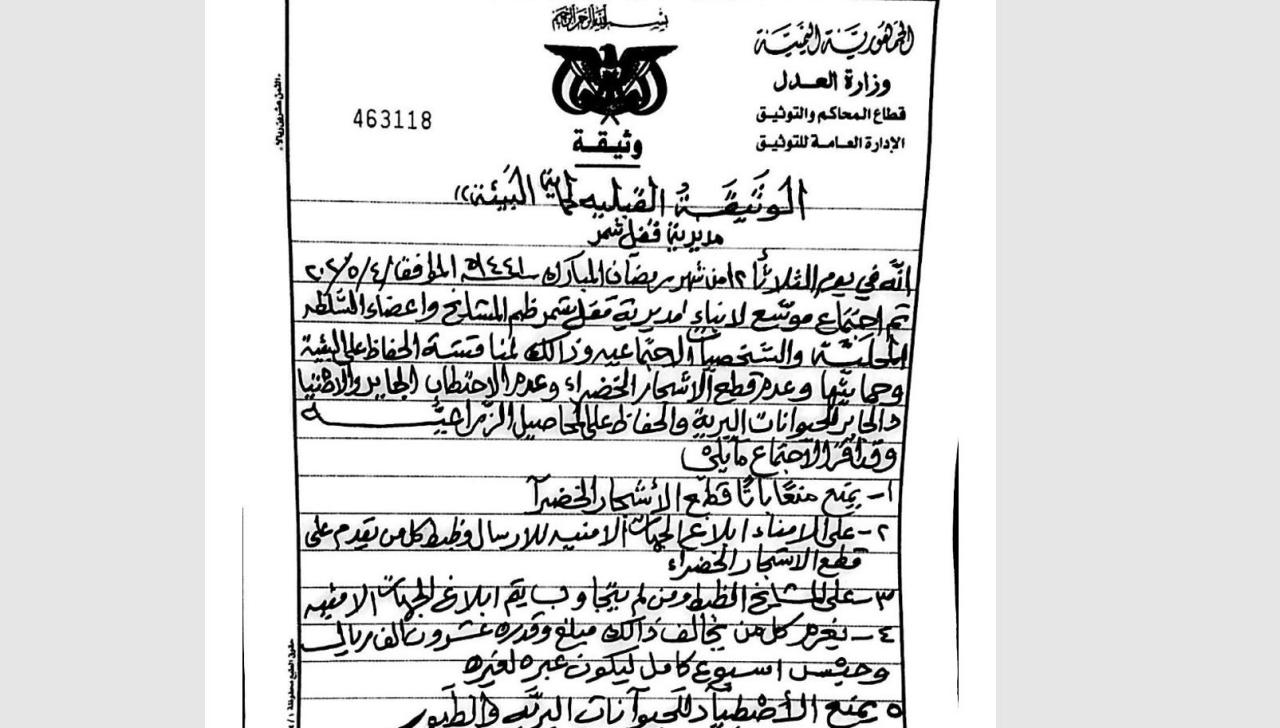 بسم الله الرحمن الرحيم
الجمهورية اليمنية
وزارة العدل
قطاع المحاكم والتوثيق
الإدارة العامة للتوثيق
463118
وثيقة
الوثيقة القبليه لحماية البيئة»
مديرية قفل شمر
انه في يوم الثلاثا ١٢ من شهر رمضان المبارك سنة ١٤٤١هـ الموافق ٢٠٢٠/٥/٤
تم اجتماع موسع لابناء مديرية قفل شمر ظم المشائخ واعضاء السلطه
المحلية والشخصيات الاجتماعيه وذالك لمناقشة الحفاظ على البيئة
وحمايتها وعدم قطع الاشجار الخضراء وعدم الاحتطاب الجاير والاصطياد
الجاير للحيوانات البرية والحفاظ على المحاصيل الزراعية
وقد اقر الاجتماع مايلي
١- يمنع منعاً باتاً قطع الأشجار الخضرآ
٢- على الامناء ابلاغ الجهات الامنيه للارسال وظبط كل من يقدم على
قطع الاشجار الخضراء
٣- على المشائخ الظبط ومن لم يتجاوب يتم ابلاغ الجهات الامنيه
٤- يغرم كل من يخالف ذالك مبلغ وقدره عشرون الف ريال
وحبس اسبوع كامل ليكون عبره لغيره
٥ يمنع الأصطياد للحيوانات البريه والطيور
الثمن عشرون ريالا
حقوق الطبع محفوظة